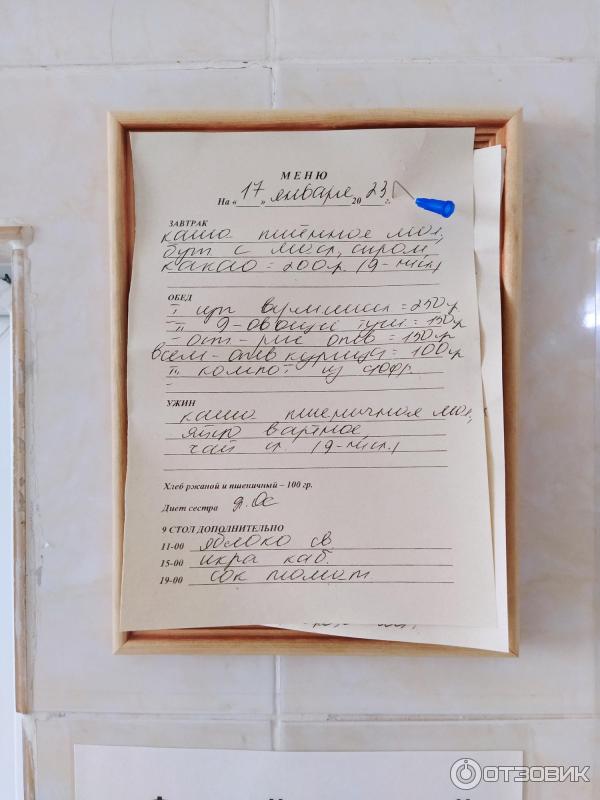 МЕНЮ
На «17» января 2023 г.
ЗАВТРАК
каша пшённое мол,
бут с маслом, сыром
какао = 200 г. (9-
ОБЕД
I
= 250 гр
II 9-овощи туш = 150 гр
ост - рис отв = 150 гр
всем - отв курица = 100 гр
III компот из
УЖИН
каша пшеничная мол,
яйцо вареное
чай (9-
Хлеб ржаной и пшеничный – 100 гр.
Диет сестра
9 СТОЛ ДОПОЛНИТЕЛЬНО
11-00 яблоко св
15-00 икра каб.
19-00 сок томат.
ОТЗОВИК